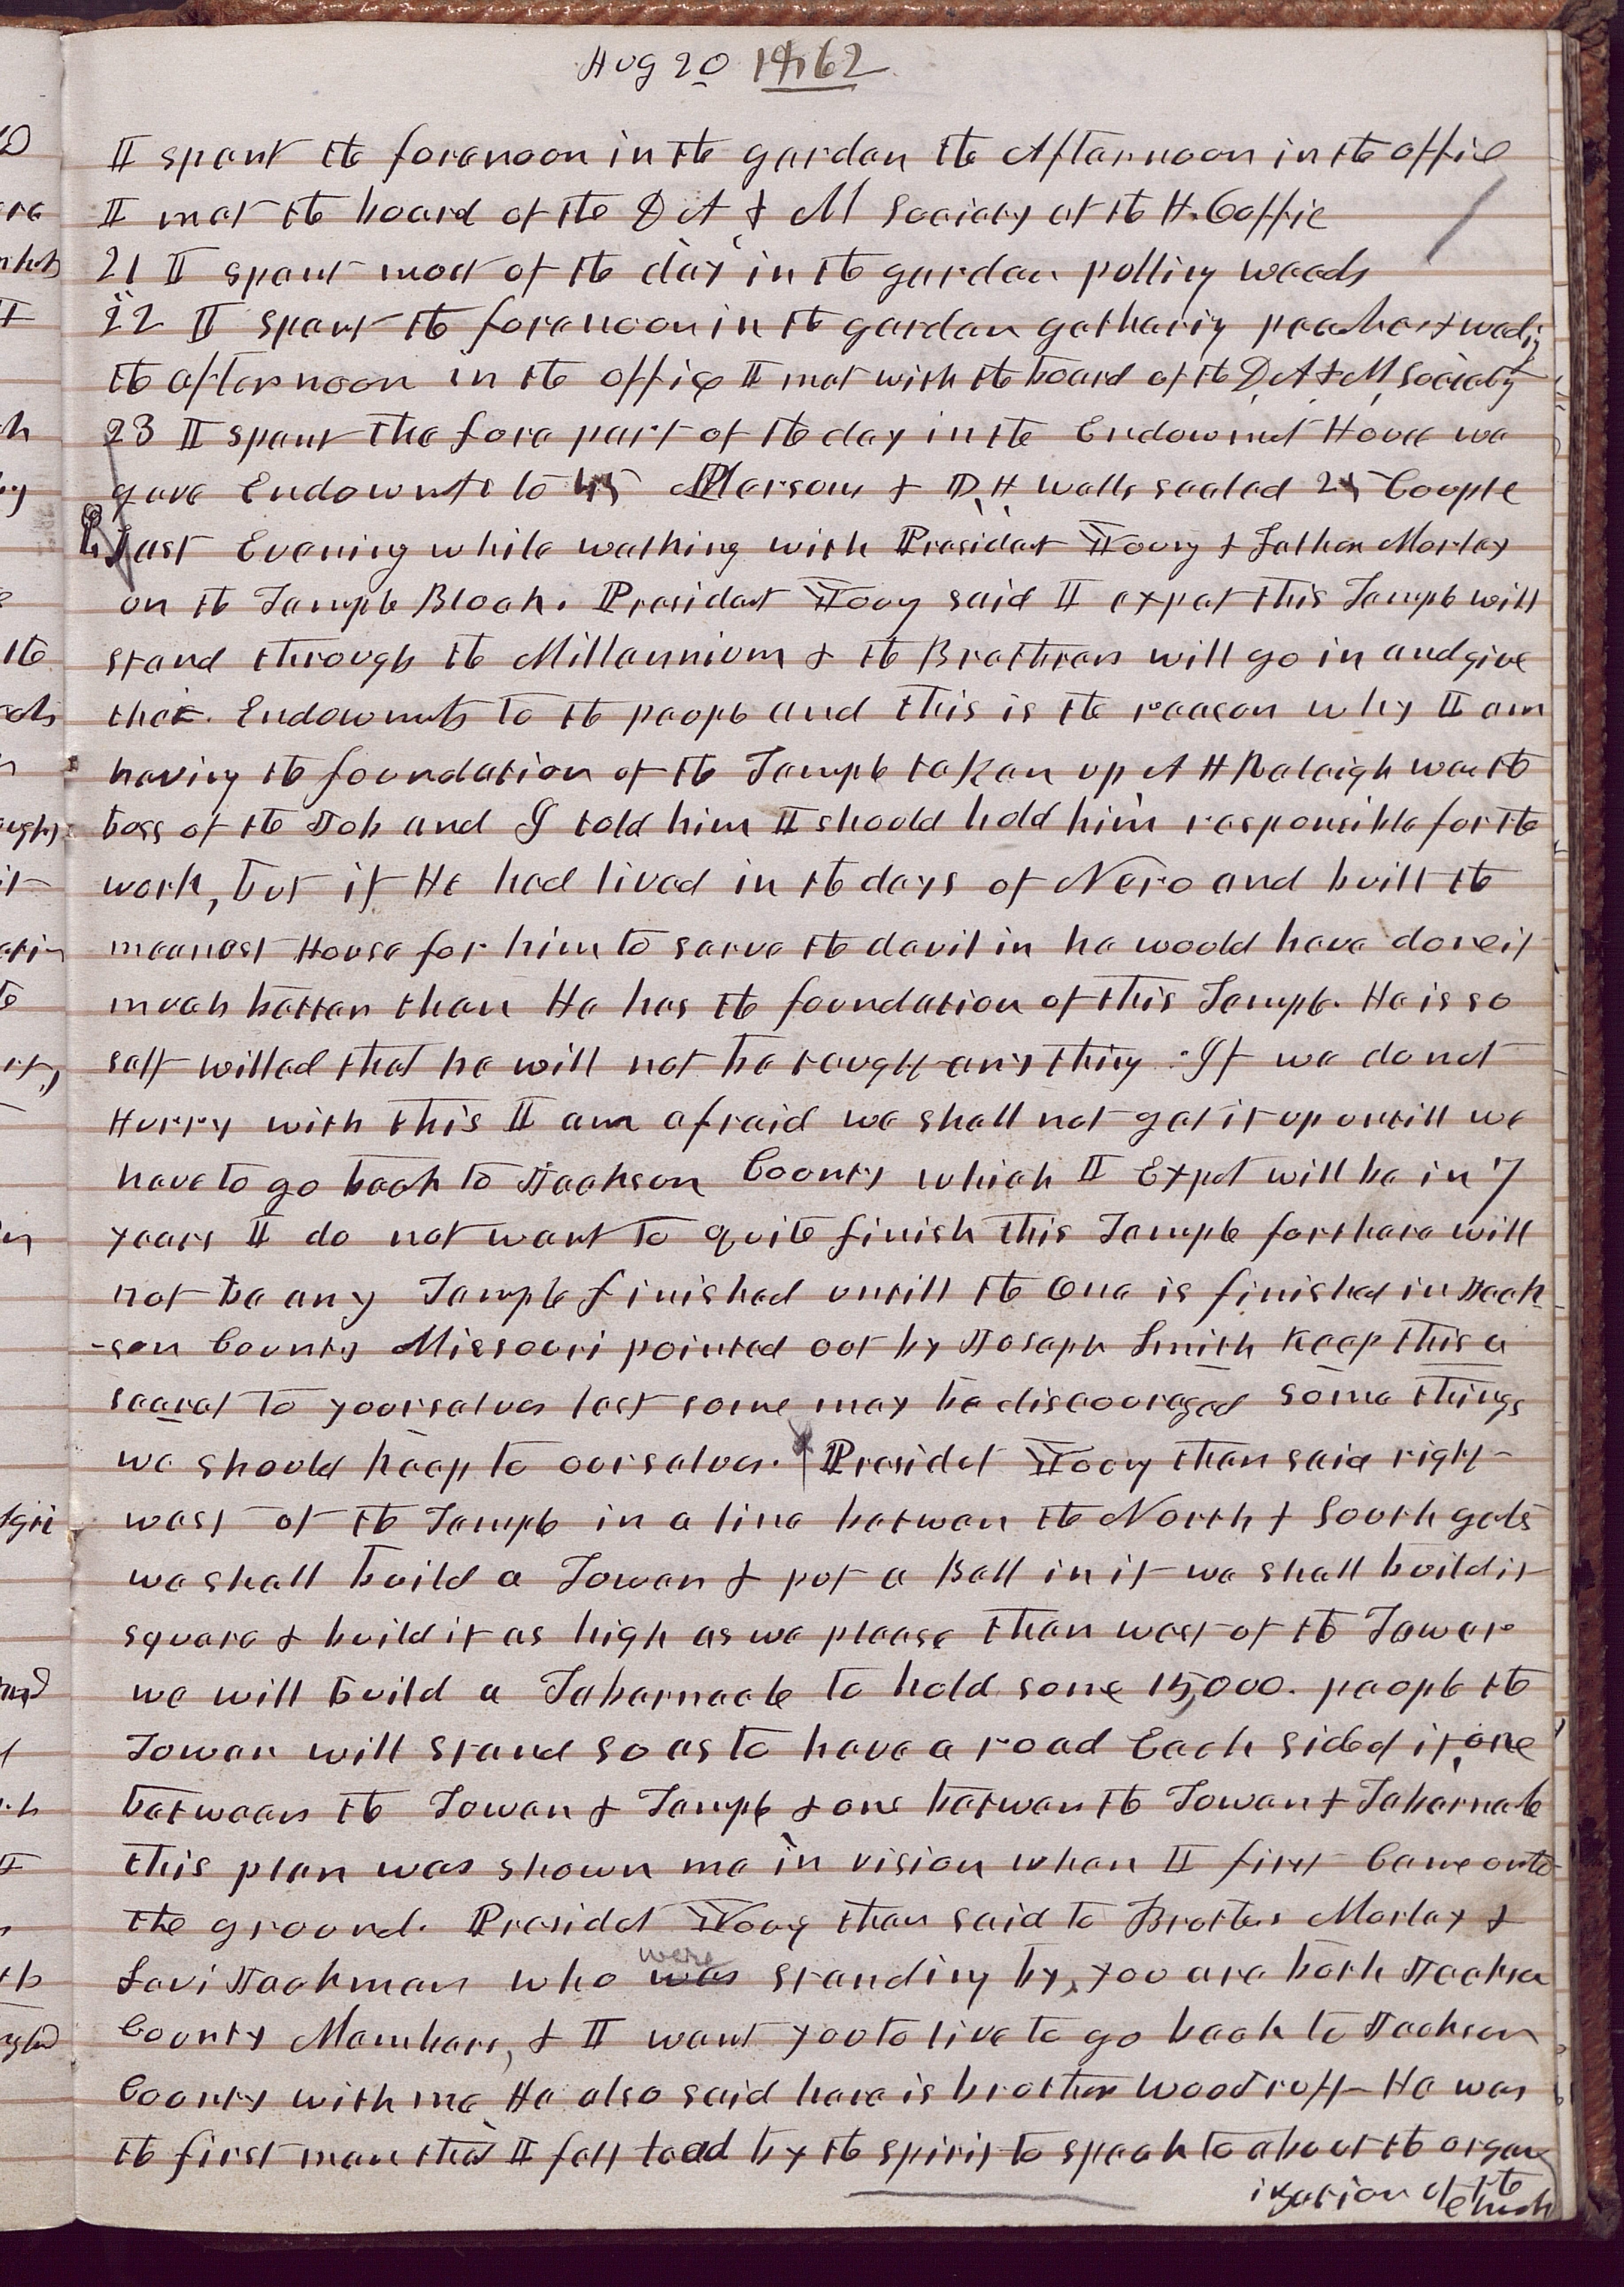 Aug 20 1862
I spent the forenoon in the garden the Afternoon in the office
I met the board of the D A & M Society at the H. C office
21 I spent most of the day in the garden pulling weeds
22 I spent the forenoon in the garden gathering peaches & weding
the afternoon in the office I met with the board of the D, A, & M, Society
23 I spent the fore part of the day in the Endowmet House we
gave Endowmts to 45 Persons & D, H, Wells sealed 25 Couple
Last Evening while walking with Presidet Young & Father Morley
on the Temple Block. President Young said I expet this Temple will
stand through the Millannium & the Brethren will go in and give
their. Endowmets to the people and this is the reason why I am
having the foundation of the Temple taken up A H Raleigh was the
boss of the Job and I told him I should hold him responsible for the
work, but if He had lived in the days of Nero and built the
meanest House for him to serve the devil in he would have done it
much better than He has the foundation of this Temple. He is so
self willed that he will not be taught any thing. If we do not
Hurry with this I am afraid we shall not get it up untill we
have to go back to Jackson County which I Expet will be in 7
years I do not want to quite finish this Temple for there will
not be any Temple finished untill the One is finished in Jack-
-son County Missouri pointed out by Joseph Smith Keep this a
secret to yourselves lest some may be discouraged some things
we should keep to ourselves. Presidet Young then said right
west of the Temple in a line betwen the North & South gate
we shall build a Tower & put a Bell in it we shall build it
square & build it as high as we please then west of the Tower
we will build a Tabernacle to hold some 15,000. people the
Tower will stand so as to have a road Each side of it, one
between the Tower & Temple & one betwen the Tower & Tabernacle
this plan was shown me in vision when I first Came onto
the ground. Presidet Young then said to Brothers Morley &
Levi Jackman who was were standing by, you are both Jackson
County Members, & I want you to live to go back to Jackson
County with me He also said here is brother Woodruff He was
the first man that I felt to by the spirit to speak to about the organ
ization of the Church